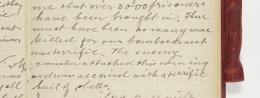 me that over 3000 prisoners
have been brought in. There
must have been as many more
killed for our bombardment
was terrific. The enemy
counter attacked this evening
and was received with a terrific
hail of shells.